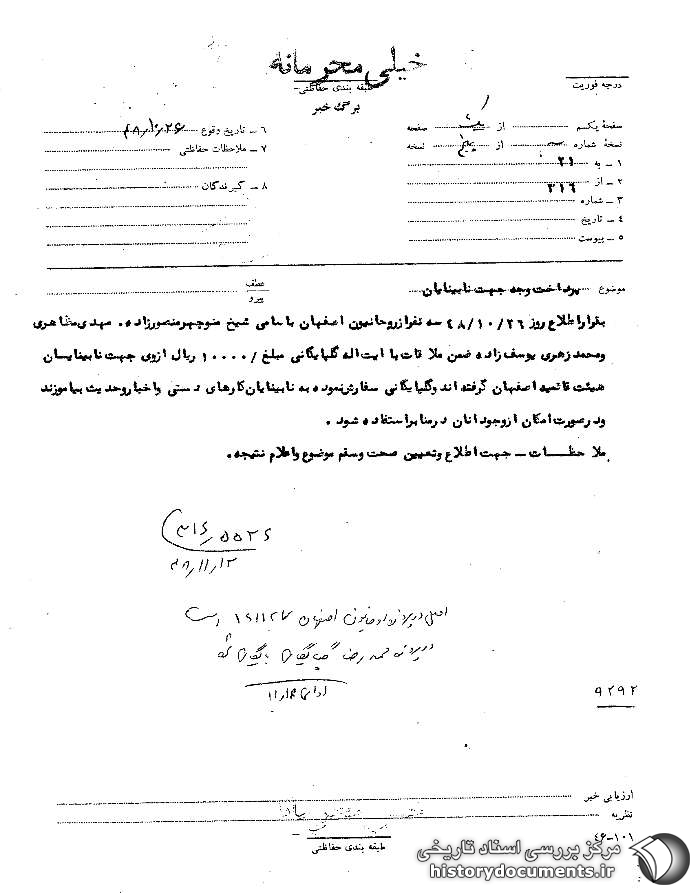 خیلی محرمانه
طبقه بندی حفاظتی-
درجه فوریت
برگ خبر
صفحهٔ یکم از صفحه
نسخهٔ شماره از پنج نسخه
۱ ـ به ۲۱
۲ ـ از ۳۱۶
۳ ـ شماره
۴ ـ تاریخ
۵ ـ پیوست
۶ ـ تاریخ وقوع ۴۸/۱۰/۲۶
۷ ـ ملاحظات حفاظتی
۸ ـ گیرندگان
موضوع پرداخت وجه جهت نابینایان
عطف
پیرو
بقرار اطلاع روز ۴۸/۱۰/۲۶ سه نفر از روحانیون اصفهان باسامی شیخ منوچهر منصورزاده. مهدی مظاهری
ومحمد زهری یوسف زاده ضمن ملاقات با ایت اله گلپایگانی مبلغ /۱۰۰۰۰ ریال ازوی جهت نابینایان
هیئت قائمیه اصفهان گرفته اند وگلپایگانی سفارش نموده به نابینایان کارهای دستی واخبار وحدیث بیاموزند
ودرصورت امکان ازوجود انان درمنابر استفاده شود.
ملاحظات ـ جهت اطلاع وتعیین صحت وسقم موضوع واعلام نتیجه.
۳۱۶/۵۵۲۶
۴۸/۱۱/۲
اصل در پرونده روحانیون اصفهان
۹۲۹۲
ارزیابی خبر
نظریه
طبقه بندی حفاظتی
۴۶-۱۰۱
مرکز بررسی اسناد تاریخی
historydocuments.ir